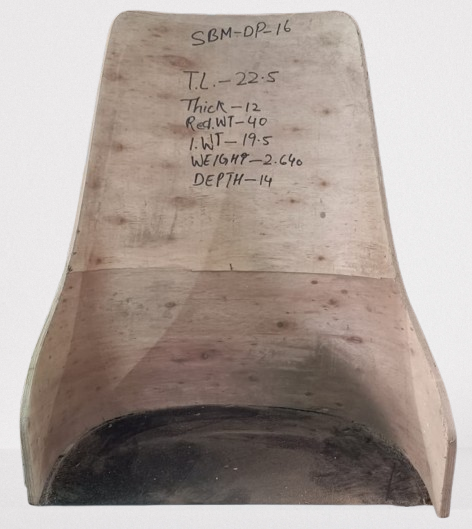 SBM-DP-16
T.L.-22.5
Thick-12
Red.WT-40
I.WT-19.5
WEIGHT-2.640
DEPTH-14